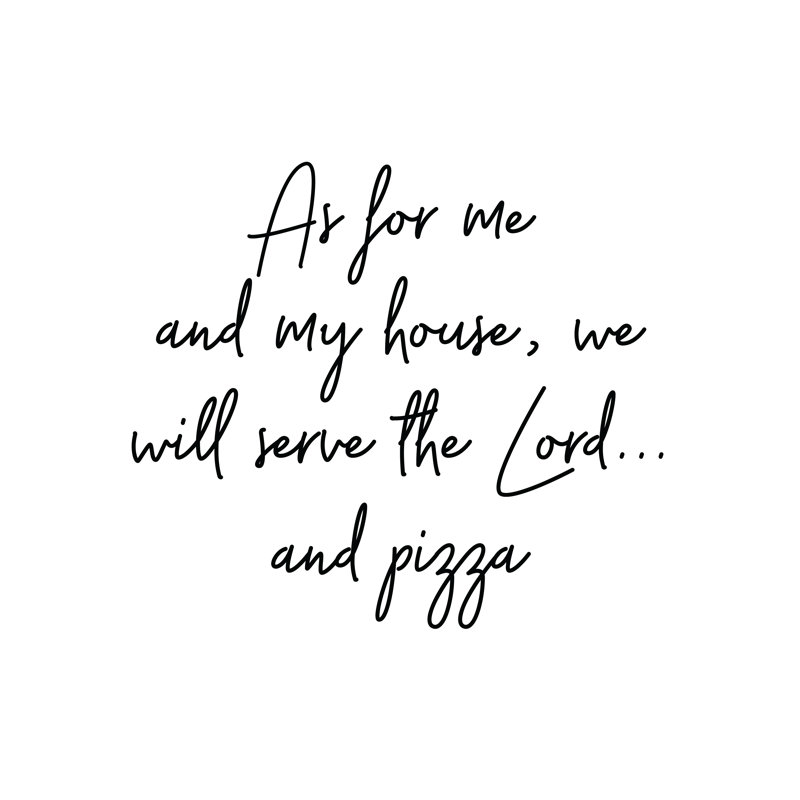 As for me
and my house, we
will serve the Lord...
and pizza